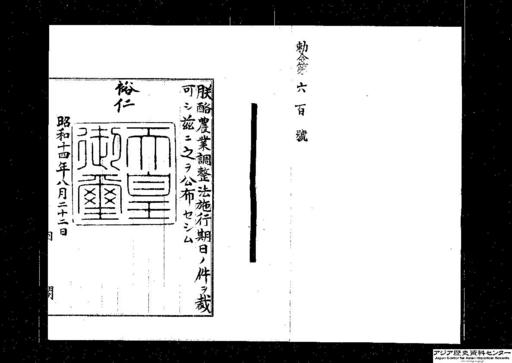 勅令第六百號
朕酪農業調整法施行期日ノ件ヲ裁
可シ茲ニ之ヲ公布セシム
裕仁
天皇
御璽
昭和十四年八月二十二日
内閣
アジア歴史資料センター
Japan Center for Asian Historical Records